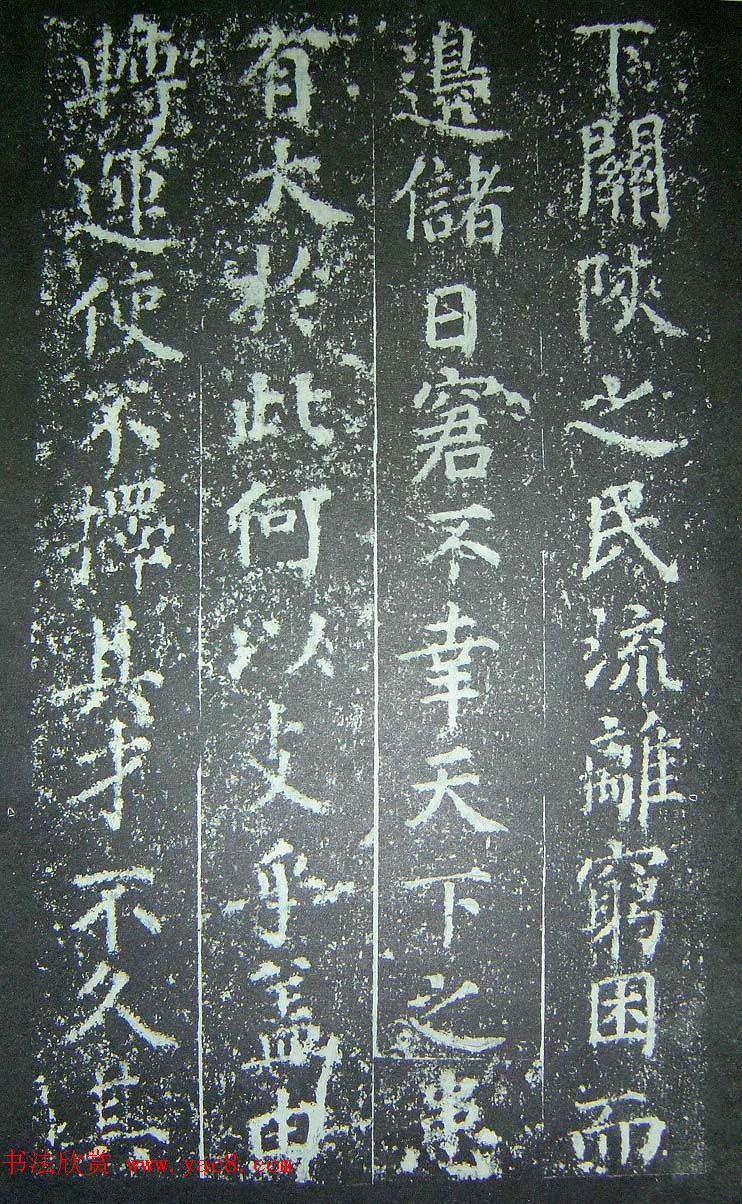 下關陝之民流離窮困而
邊儲日窘不幸天下之患
有大於此何以支乎盖由
轉運使不擇其才不久其
书法欣赏 www.yac8.com